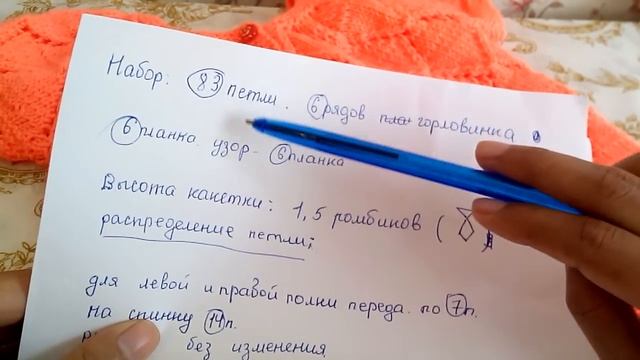 Набор: 83 петли. 6 рядов горловинка
6 планка узор - 6 планка
Высота какетки: 1,5 ромбиков (
распределение петли;
для левой и правой полки переда. по 7п.
на спинку 14п.
без изменения